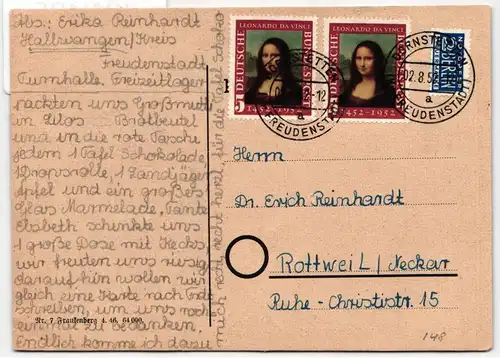 Abs.: Erika Reinhardt
Hallwangen/Kreis
Freudenstadt
Turnhalle, Freizeitlager
packten uns Großmutti
in Lilos Brotbeutel
und in die rote Tasche
jedem 1 Tafel Schokolade,
1 Dropsrolle, 1 Landjäger
Äpfel und ein großes
Glas Marmelade, Tante
Elsbeth schenkte uns
1 große Dose mit Keks,
wir freuten uns riesig
darauf hin wollen wir
gleich eine Karte nach
schreiben, um uns noch
einmal zu bedanken.
Endlich komme ich dazu
mich recht, recht herzl. für die Tafel Schoko
Nr. 7 Fraudenberg 4. 46. 64 000.
LEONARDO DA VINCI
DEUTSCHE
BUNDESPOST
5
1452-1952
LEONARDO DA VINCI
DEUTSCHE
BUNDESPOST
5
1452-1952
FREUDENSTADT
a
-2.8.52
a
FREUDENSTADT
NOTOPFER
2 BERLIN
STEUERMARKE
Herrn
Dr. Erich Reinhardt
Rottweil/Neckar
Ruhe-Christistr. 15
148